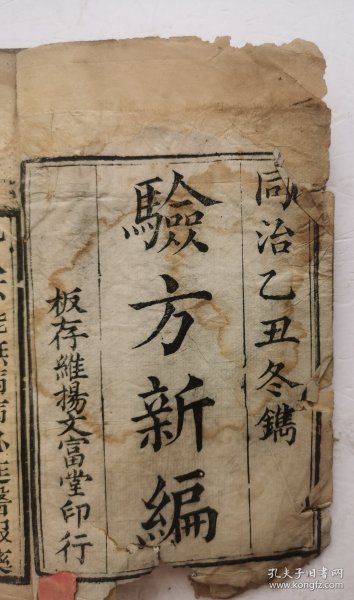 同治乙丑冬鐫
驗方新編
板存維揚文富堂印行
孔夫子旧书网
www.kongfz.com